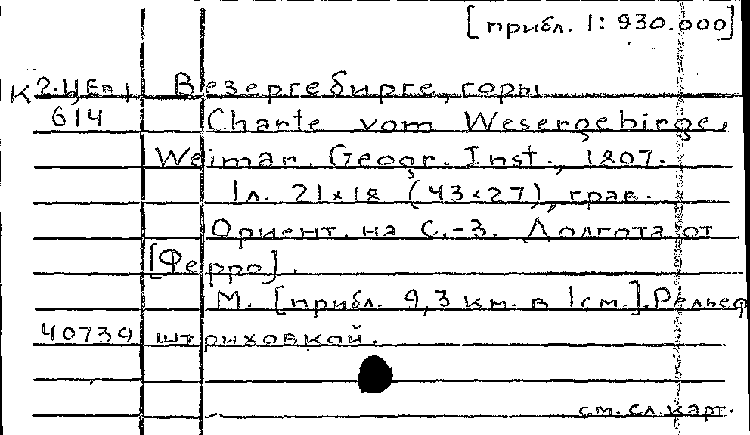 [прибл. 1: 930.000]
К 2-ЦЕв1 Везергебирге, горы
614 Charte vom Wesergebirge.
Weimar. Geogr. Inst., 1807.
1л. 21×18 (43×27), грав.
Ориент. на С.-З. Долгота от
[Ферро].
М. [прибл. 9,3 км. в 1см.]. Рельеф
40739 штриховкой.
см. сл. карт.